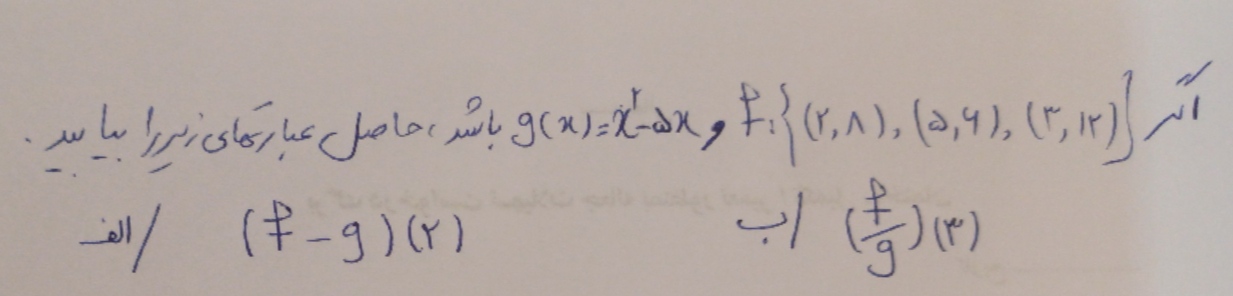 اگر f = {(۲,۸), (۵,۶), (۳,۱۲)} و g(x) = x²-۵x باشد، حاصل عبارتهای زیر را بیابید.
الف/ (f - g)(۲) ب/ (f/g)(۳)